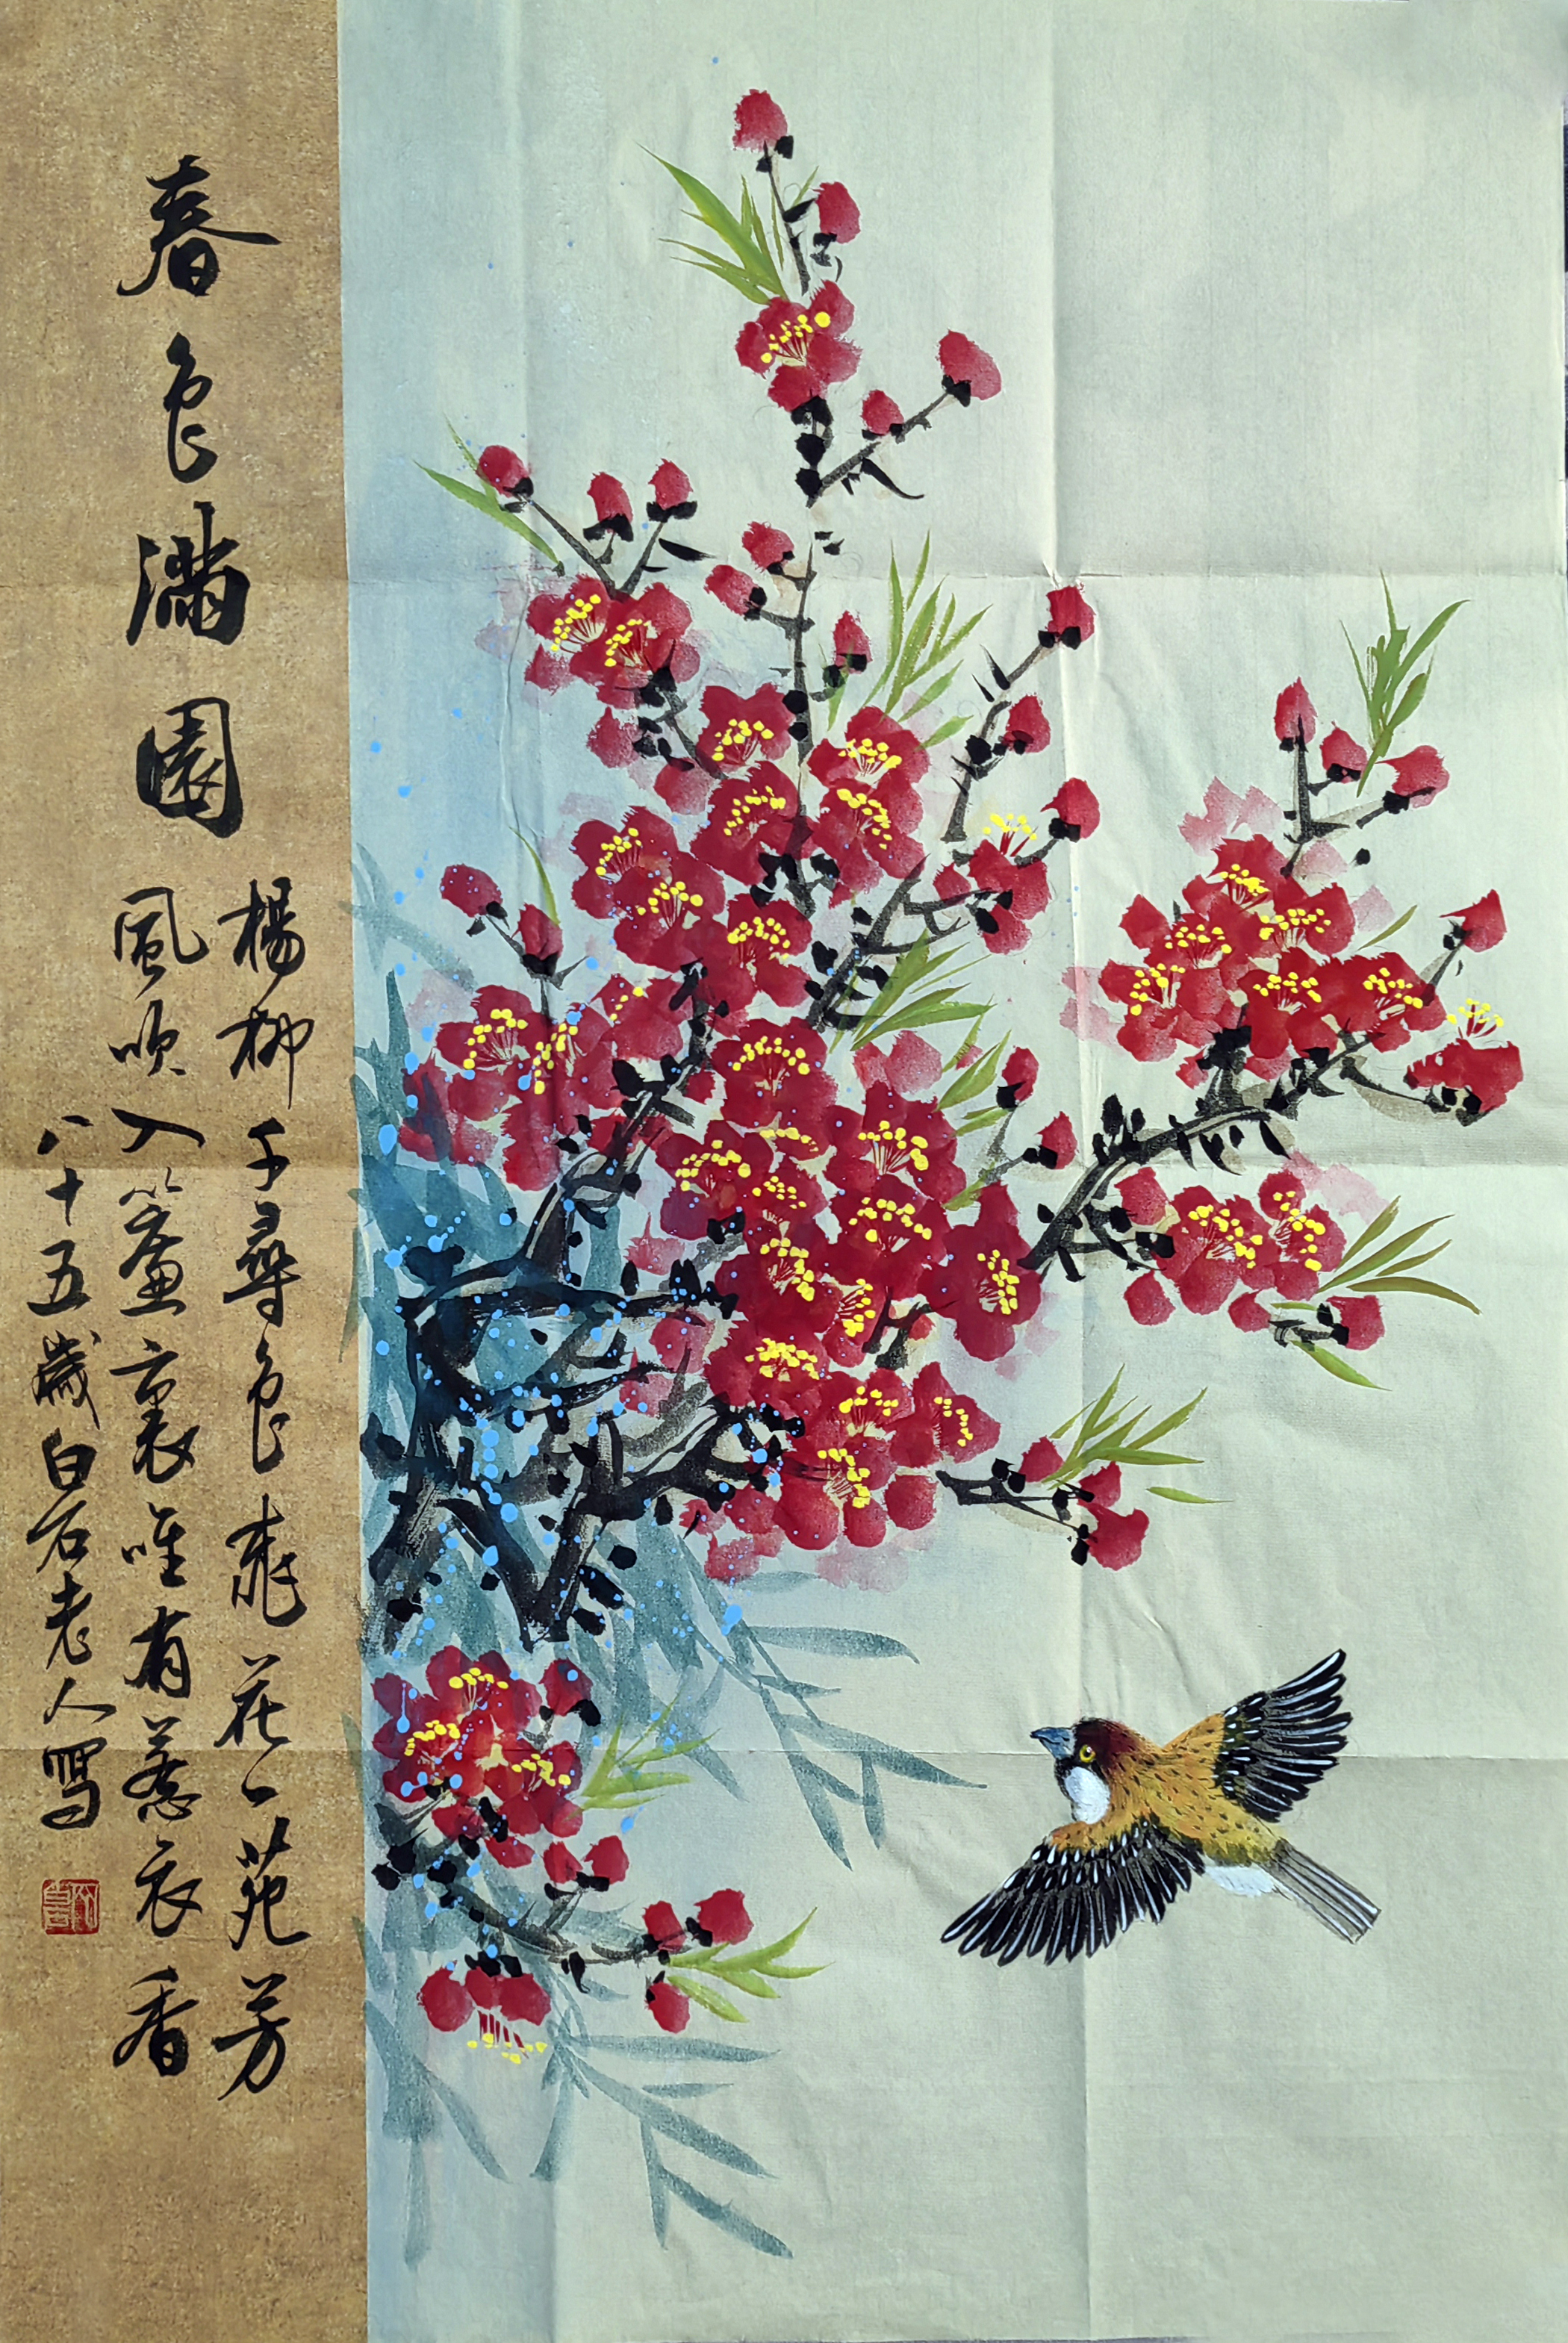 春色滿園
楊柳千尋色桃花一苑芳
風吹入簾裏唯有惹衣香
八十五歲白石老人寫